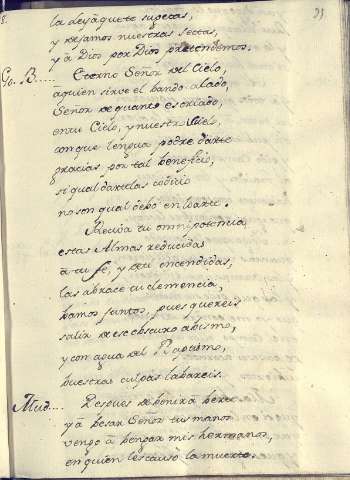 93
la dejàquete supetas,
y dejamos nuestras sectas,
y à Dios por Dios pretendemos.
Go. B.... Eterno Señor del Cielo,
aquien sirve el bando alado,
Señor de quanto es criado,
en tu Cielo, y nuestro suelo,
con que lengua podrè darte
gracias por tal beneficio,
si qual dartelas codicio
no son qual debo en loarte.
Reciva tu omnipotencia
estas Almas reducidas
à tu fe, y en ti encendidas,
las abrace tu clemencia,
bamos juntos, pues quereis
salir de ese obscuro abismo,
y con agua del Baptismo,
vuestras culpas labareis.
Mud.... Despues de benir à berte
y à besar Señor tus manos
vengo à bengar mis hermanos,
en quien les causò la muerte.